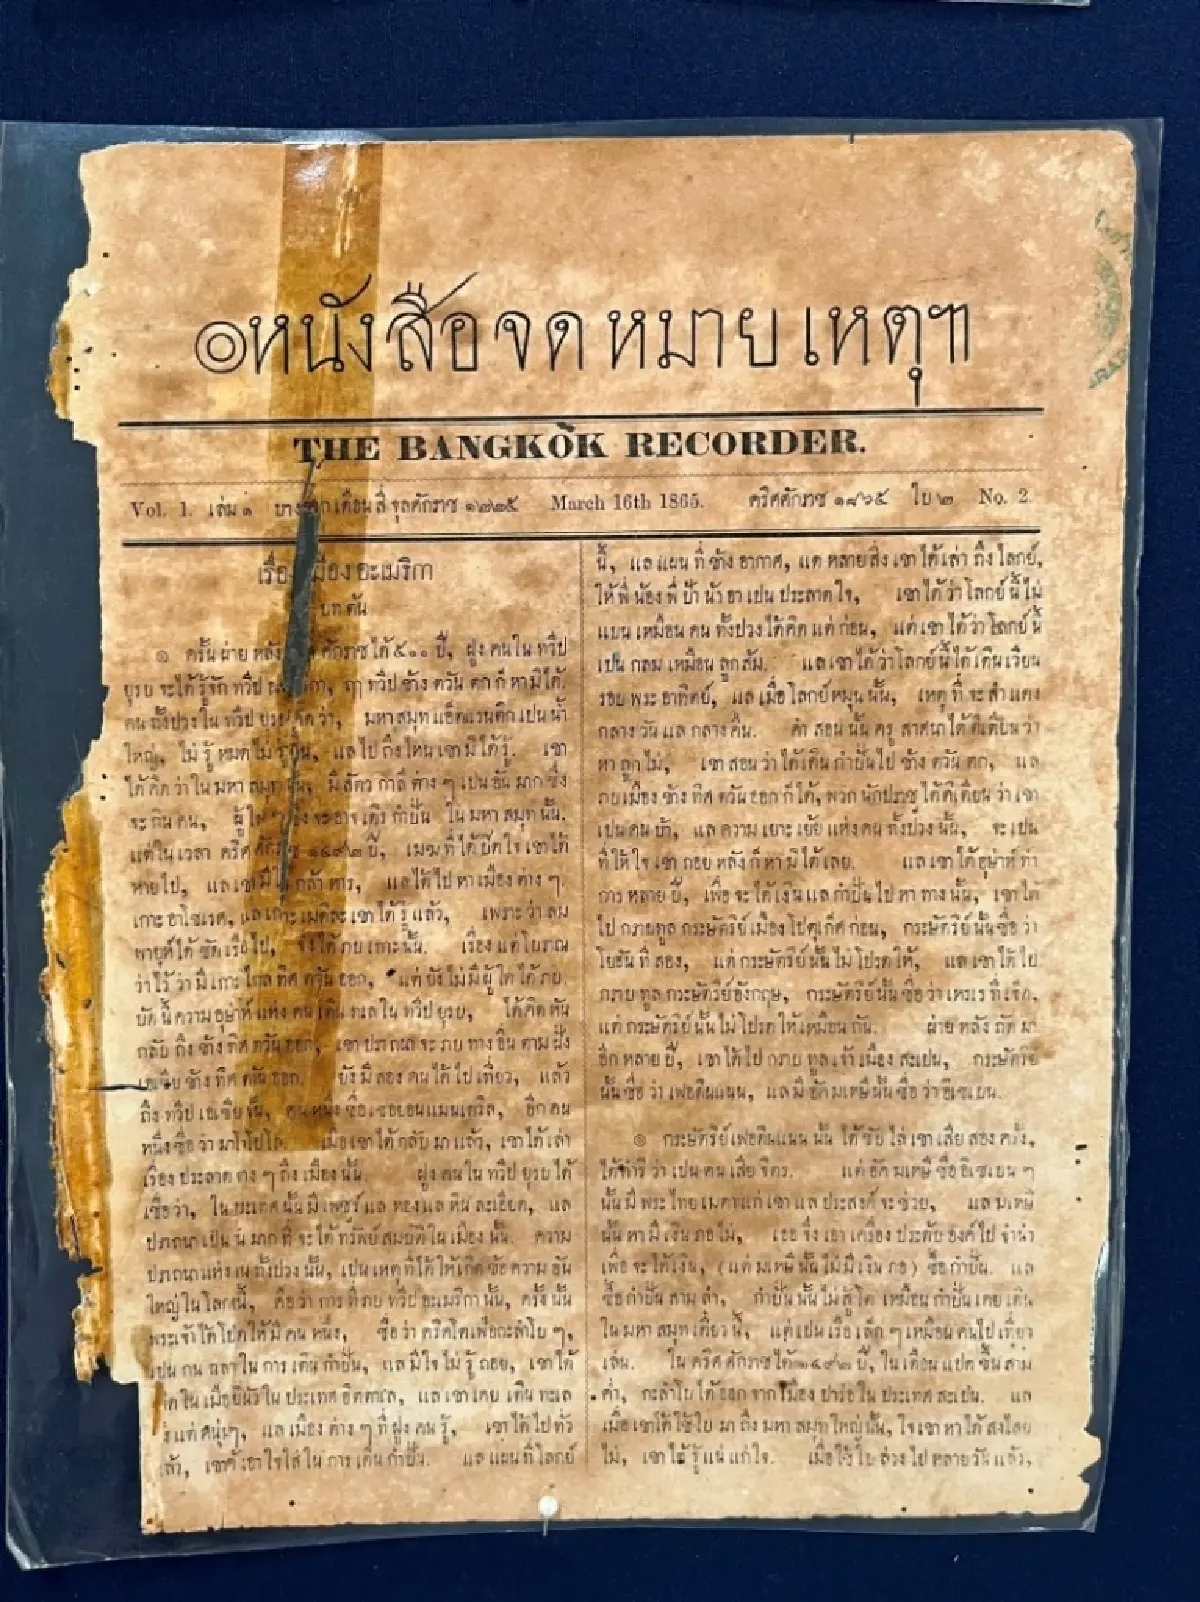 ๏หนังสือจดหมายเหตุฯ
THE BANGKOK RECORDER.
Vol. 1. เล่ม ๑ เดือน สี่ จุลศักราช ๑๒๒๕ March 16th 1865. คริศศักราช ๑๘๖๕ ใบ ๒ No. 2.
เรื่อง เมือง อะเมริกา
บท ต้น
๏ ครั้น ผ่าย หลัง ศักราช ได้ ๕๐๐ ปี, ฝูง คน ใน ทวีป
ยุรบ จะ ได้ รู้จัก ทวีป ข้าง ตวัน ตก ก็ หา มิ ได้.
คน ทั้งปวง ใน ทวีป ยุรบ คิด ว่า, มหา สมุท แอ็ตแรนติก เปน น้ำ
ใหญ่, ไม่ รู้ หมด ไม่ รู้ สิ้น, แล ไป ถึง ไหน เขา มิ ได้ รู้. เขา
ได้ คิด ว่า ใน มหา สมุท นั้น, มี สัตว ต่าง ๆ เปน อัน มาก ซึ่ง
จะ กิน คน, ผู้ ใด ๆ ซึ่ง จะ อาจ เดิร กำปั่น ใน มหา สมุท นั้น.
แต่ ใน เวลา คริศศักราช ๑๔๙๒ ปี, เมฆ ที่ ได้ ปิด ใจ เขา ได้
หาย ไป, แล เขา มี ใจ กล้า หาร, แล ได้ ไป หา เมือง ต่าง ๆ.
เขา ได้ รู้ แล้ว, เพราะ ว่า ลม
พายุห์ ได้ ซัด เรือ ไป, จึง ได้ ภบ เกาะ นั้น. เรื่อง แต่ โบราณ
ว่า ไว้ ว่า มี เกาะ ไกล ทิศ ตวัน ออก, แต่ ยัง ไม่ มี ผู้ ใด ได้ ภบ.
ใน ทวีป ยุรบ, ได้ คิด หัน
กลับ ถึง ข้าง ทิศ ตวัน ออก, เขา ปราถนา จะ ภบ ทาง อื่น ตาม ฝั่ง
เอเซีย ข้าง ทิศ ตวัน ออก. ยัง มี สอง คน ได้ ไป เที่ยว, แล้ว
ถึง ทวีป เอเซีย นั้น, คน หนึ่ง ชื่อ อีก คน
หนึ่ง ชื่อ ว่า มาโกโปโล เมื่อ เขา ได้ กลับ มา แล้ว, เขา ได้ เล่า
เรื่อง ประลาด ต่าง ๆ ถึง เมือง นั้น. ฝูง คน ใน ทวีป ยุรบ ได้
เชื่อ ว่า, ใน ประเทศ นั้น มี เพชร์ แล ทอง แล หิน ละเอียด, แล
ปราถนา เปน อัน มาก ที่ จะ ได้ ทรัพย์ สมบัติ ใน เมือง นั้น. ความ
ปราถนา แห่ง คน ทั้งปวง นั้น, เปน เหตุ ที่ ได้ ให้ เกิด ข้อ ความ อัน
ใหญ่ ใน โลกย์นี้, คือ ว่า การ ที่ ภบ ทวีป อะเมริกา นั้น, ครั้ง นั้น
พระเจ้า ได้ โปรด ให้ มี คน หนึ่ง, ชื่อ ว่า คริศโตเฟอกะลำโบ ๆ,
เปน คน ฉลา ใน การ เดิน กำปั่น, แล มี ใจ ไม่ รู้ ถอย, เขา ได้
ใน ประเทศ อิตตาเล, แล เขา เคย เดิน ทะเล
แต่ หนุ่มๆ, แล เมือง ต่าง ๆ ที่ ฝูง คน รู้, เขา ได้ ไป ทั่ว
แล้ว, เขา ก็ เอา ใจ ใส่ ใน การ เดิน กำปั่น. แล แผน ที่ โลกย์
นี้, แล แผน ที่ ข้าง อากาศ, แต่ หลาย สิ่ง เขา ได้ เล่า ถึง โลกย์,
ให้ พี่ น้อง พี่ ป้า น้า อา เปน ประลาด ใจ, เขา ได้ ว่า โลกย์ นี้ ไม่
แบน เหมือน คน ทั้งปวง ได้ คิด แต่ ก่อน, แต่ เขา ได้ ว่า โลกย์ นี้
เป็น กลม เหมือน ลูก ส้ม. แล เขา ได้ ว่า โลกย์ นี้ ได้ เดิน เวียน
รอบ พระ อาทิตย์, แล เมื่อ โลกย์ หมุน นั้น, เหตุ ที่ จะ สำแดง
กลาง วัน แล กลาง คืน. คำ สอน นั้น ครู สาศนา ได้ ติเตียน ว่า
หา ถูก ไม่, เขา สอน ว่า ได้ เดิน กำปั่น ไป ข้าง ตวัน ตก, แล
ภบ เมือง ข้าง ทิศ ตวัน ออก ก็ ได้, พวก นักปราช ได้ ติเตียน ว่า เขา
เปน คน บ้า, แล ความ เยาะ เย้ย แห่ง คน ทั้งปวง นั้น, จะ เปน
ที่ ให้ ใจ เขา ถอย หลัง ก็ หา มิ ได้ เลย. แล เขา ได้ อุษ่าห์ ทำ
การ หลาย ปี, เพื่อ จะ ได้ เงิน แล กำปั่น ไป หา ทาง นั้น, เขา ได้
ไป กราบทูล กระษัตริย์ เมือง โปตุเก็ศ ก่อน, กระษัตริย์ นั้น ชื่อ ว่า
โยฮัน ที่ สอง, แต่ กระษัตริย์ นั้น ไม่ โปรด ให้, แล เขา ได้ ไป
กราบ ทูล กระษัตริย์ อังกฤษ, กระษัตริย์ นั้น ชื่อ ว่า เหนเร ที่ เจ็ด,
แต่ กระษัตริย์ นั้น ไม่ โปรด ให้ เหมือน กัน. ผ่าย หลัง ถัด มา
อีก หลาย ปี, เขา ได้ ไป กราบ ทูล เจ้า เมือง สะเปน, กระษัตริ
นั้น ชื่อ ว่า เฟอดินแนน, แล มี อัค มเหษี นั้น ชื่อ ว่า อิซเบน.
๏ กระษัตริย์ เฟอดินแนน นั้น ได้ ขับ ไล่ เขา เสีย สอง ครั้ง,
ได้ ดำริ ว่า เปน คน เสีย จิตร. แต่ อัค มเหษี ชื่อ อิซเบน ๆ
นั้น มี พระ ไทย เมตา แก่ เขา แล ประสงค์ จะ ช่วย, แล มเหษี
นั้น หา มี เงิน ภอ ไม่, เธอ จึ่ง เอา เครื่อง ประดับ องค์ ไป จำนำ
เพื่อ จะ ได้ เงิน, (แต่ มเหษี นั้น ไม่ มี เงิน ภอ) ซื้อ กำปั่น. แล
ซื้อ กำปั่น สาม ลำ, กำปั่น นั้น ไม่ สู้ โต เหมือน กำปั่น เคย เดิน
ใน มหา สมุท เดี๋ยว นี้, แต่ เปน เรือ เล็ก ๆ เหมือน คน ไป เที่ยว
เล่น. ใน คริศศักราช ได้ ๑๔๙๒ ปี, ใน เดือน แปด ขึ้น สาม
ค่ำ, กะลำโบ ได้ ออก จาก เมือง ปาร์อ ใน ประเทศ สะเปน. แล
เมื่อ เขา ได้ ใช้ ใบ มา ถึง มหา สมุท ใหญ่ นั้น, ใจ เขา หา ได้ สงไสย
ไม่, เขา ได้ รู้ แน่ แก่ ใจ. เมื่อ ใช้ ใบ ล่วง ไป หลาย วัน แล้ว,